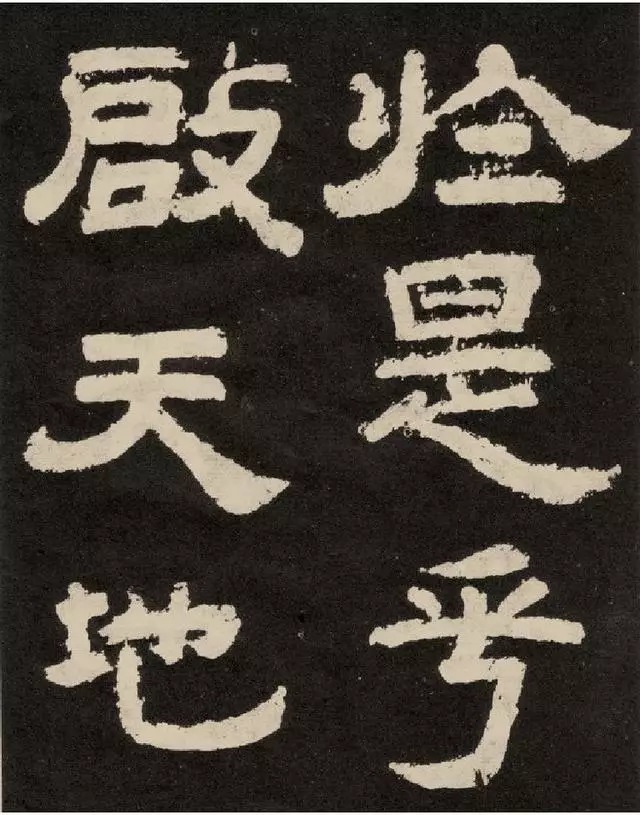 是乎
啟天地